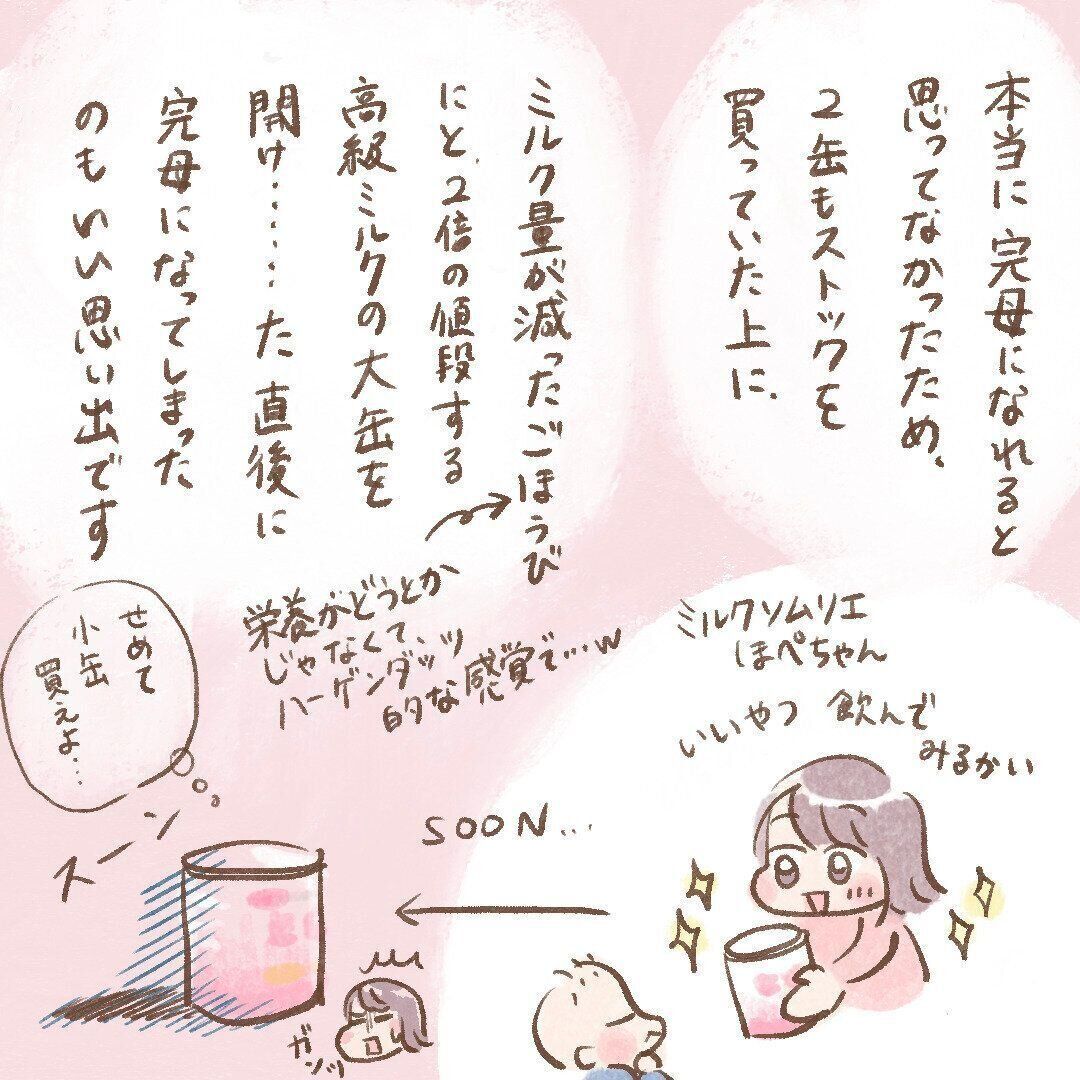 本当に完母になれると
思ってなかったため、
2缶もストックを
買っていた上に、
ミルク量が減ったごほうび
にと、2倍の値段する
高級ミルクの大缶を
開け……た直後に
完母になってしまった
のもいい思い出です
栄養がどうとか
じゃなくて、
ハーゲンダッツ
的な感覚で…w
ミルクソムリエ
ほぺちゃん
いいやつ飲んで
みるかい
SOON…
せめて
小缶
買えよ…
スーン
ガンッ